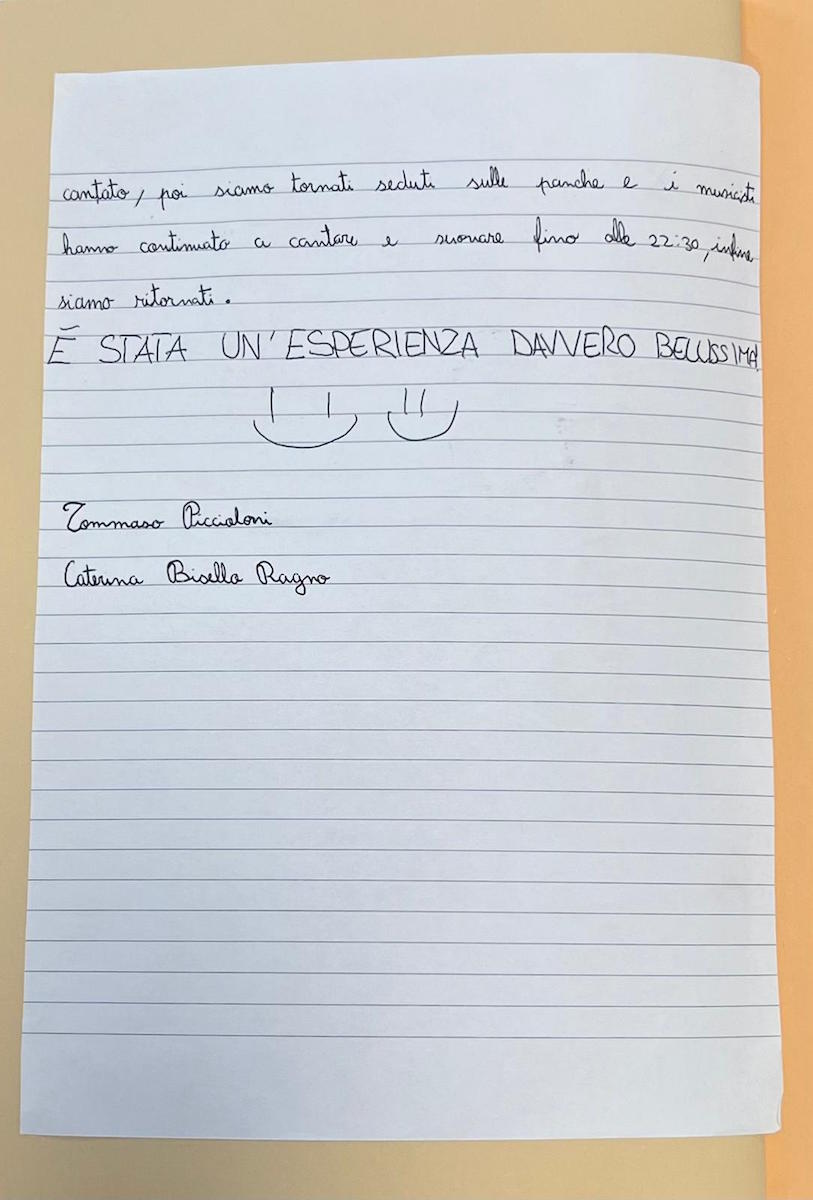 cantato, poi siamo tornati seduti sulle panche e i musicisti
hanno continuato a cantare e suonare fino alle 22:30, infine
siamo ritornati.
È STATA UN'ESPERIENZA DAVVERO BELLISSIMA!
Tommaso Piccialoni
Caterina Bisello Ragno